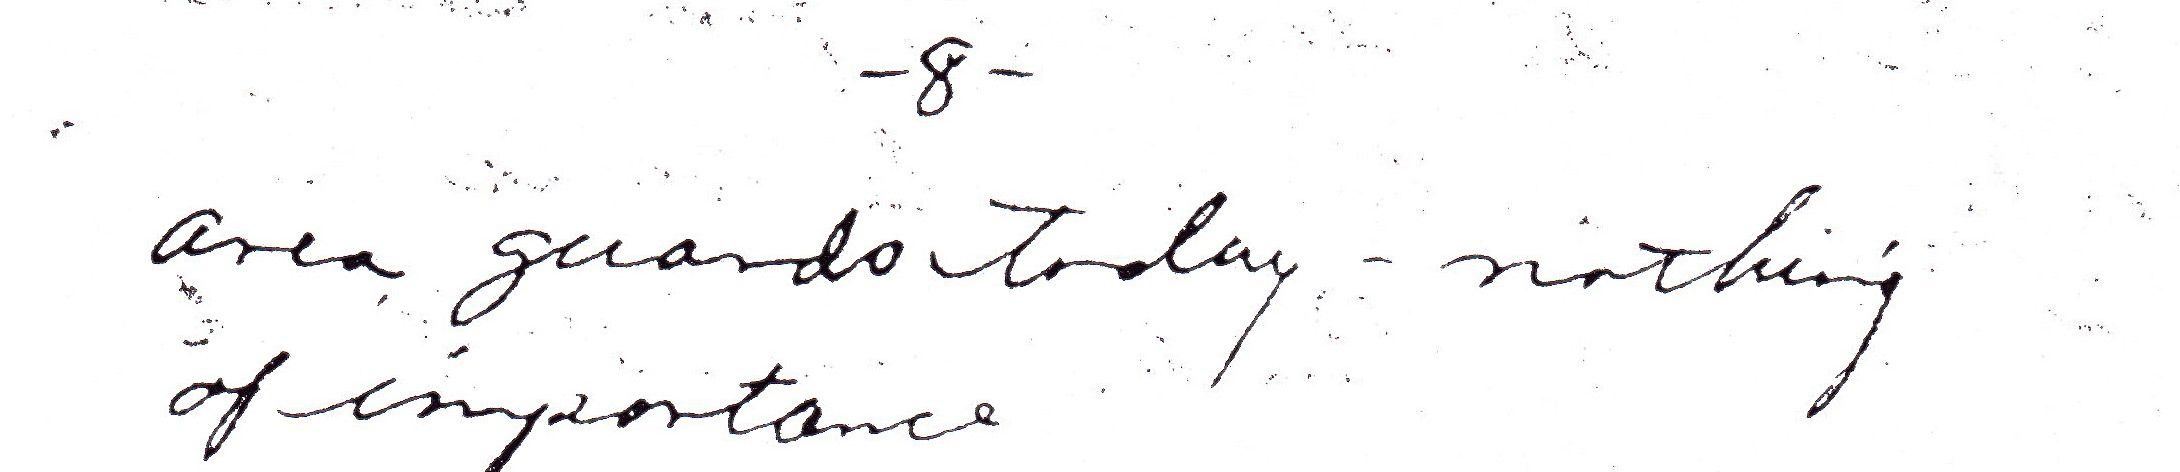 -8-
area guards today - nothing
of importance